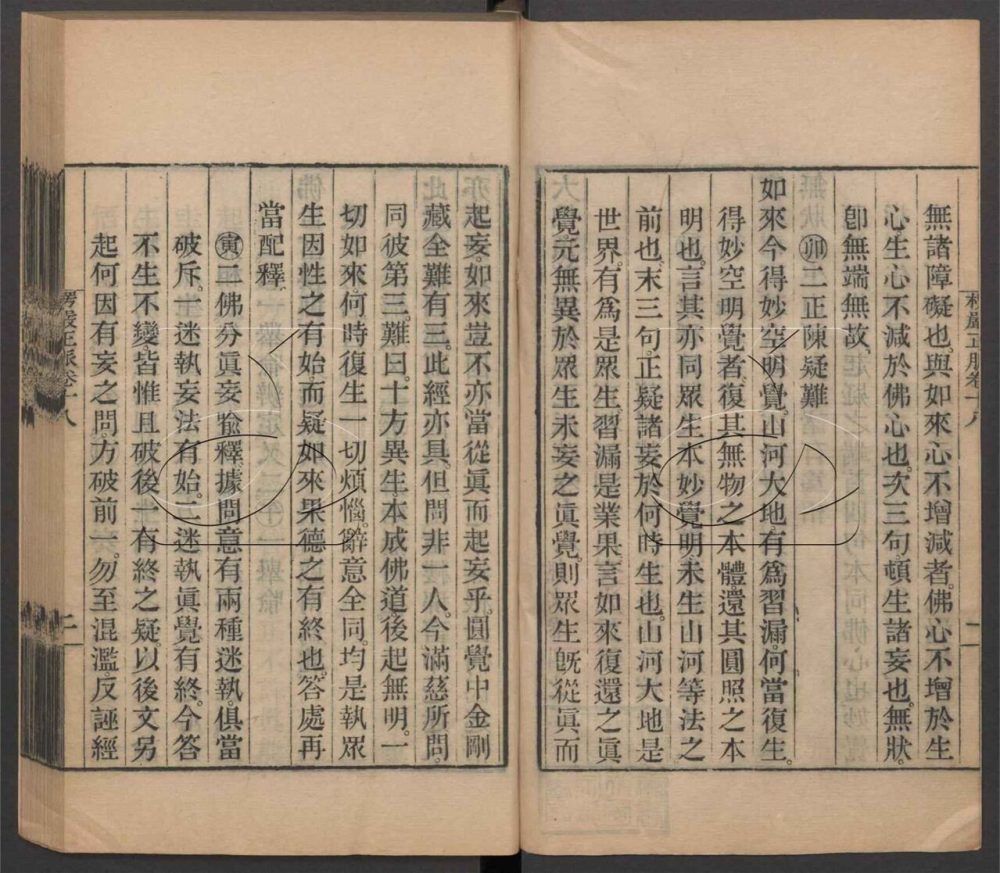 無諸障礙也。與如來心不增減者。佛心不增於生
心。生心不減於佛心也。次三句。頓生諸妄也。無狀。
卽無端無故。
㊞二正陳疑難
如來今得妙空明覺。山河大地。有爲習漏。何當復生。
得妙空明覺者。復其無物之本體。還其圓照之本
明也。言其亦同眾生本妙覺明。未生山河等法之
前也。末三句。正疑諸妄於何時生也。山河大地。是
世界。有爲是眾生。習漏是業果。言如來復還之眞
覺。元無異於眾生未妄之眞覺。則眾生旣從眞而
起妄。如來豈不亦當從眞而起妄乎。圓覺中金剛
藏全難有三。此經亦具。但問非一人。今滿慈所問。
同彼第三。難曰。十方異生。本成佛道。後起無明。一
切如來。何時復生一切煩惱。辭意全同。均是執眾
生因性之有始。而疑如來果德之有終也。答處再
當配釋。
㊞二佛分眞妄喻釋。據問意有兩種迷執。俱當
破斥。一迷執妄法有始。二迷執眞覺有終。今答
不生不變。皆惟且破後一有終之疑。以後文另
起何因有妄之問。方破前一。勿至混濫。反誣經
楞嚴正脉卷十八
二